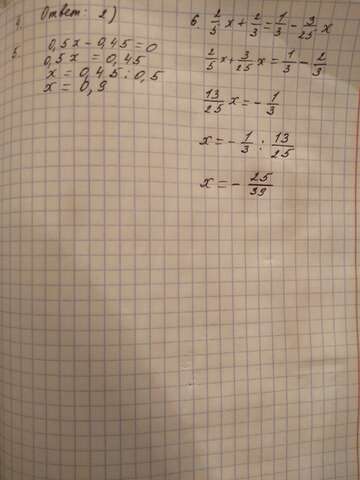 4. Ответ: 2)
5. 0,5x - 0,45 = 0
0,5x = 0,45
x = 0,45 : 0,5
x = 0,9
6. 2/5 x + 2/3 = 1/3 - 3/25 x
2/5 x + 3/25 x = 1/3 - 2/3
13/25 x = - 1/3
x = - 1/3 : 13/25
x = - 25/39